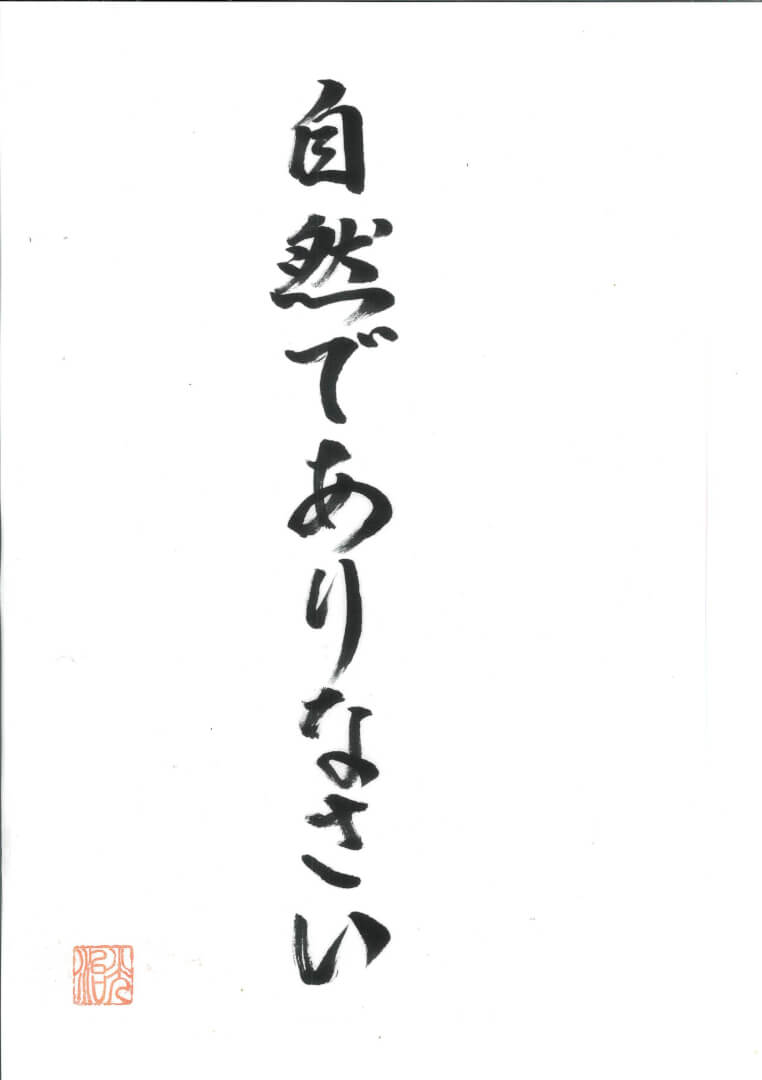 自然でありなさい